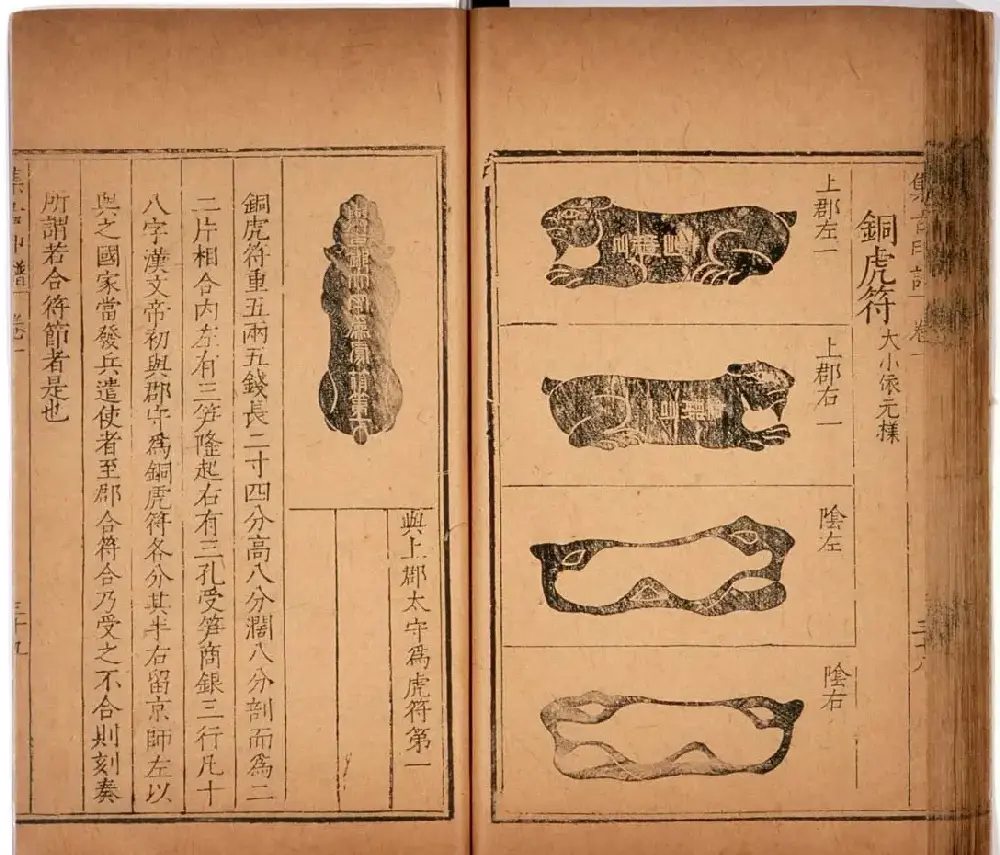 集古印譜 卷一 三十八
銅虎符 大小依元樣
上郡左一
上郡右一
陰左
陰右
與上郡太守爲虎符第一
銅虎符重五兩五錢長二寸四分高八分濶八分剖而爲二
二片相合内左有三笋隆起右有三孔受笋商銀三行凡十
八字漢文帝初與郡守爲銅虎符各分其半右留京師左以
與之國家當發兵遣使者至郡合符合乃受之不合則刻奏
所謂若合符節者是也
集古印譜 卷一 三十九